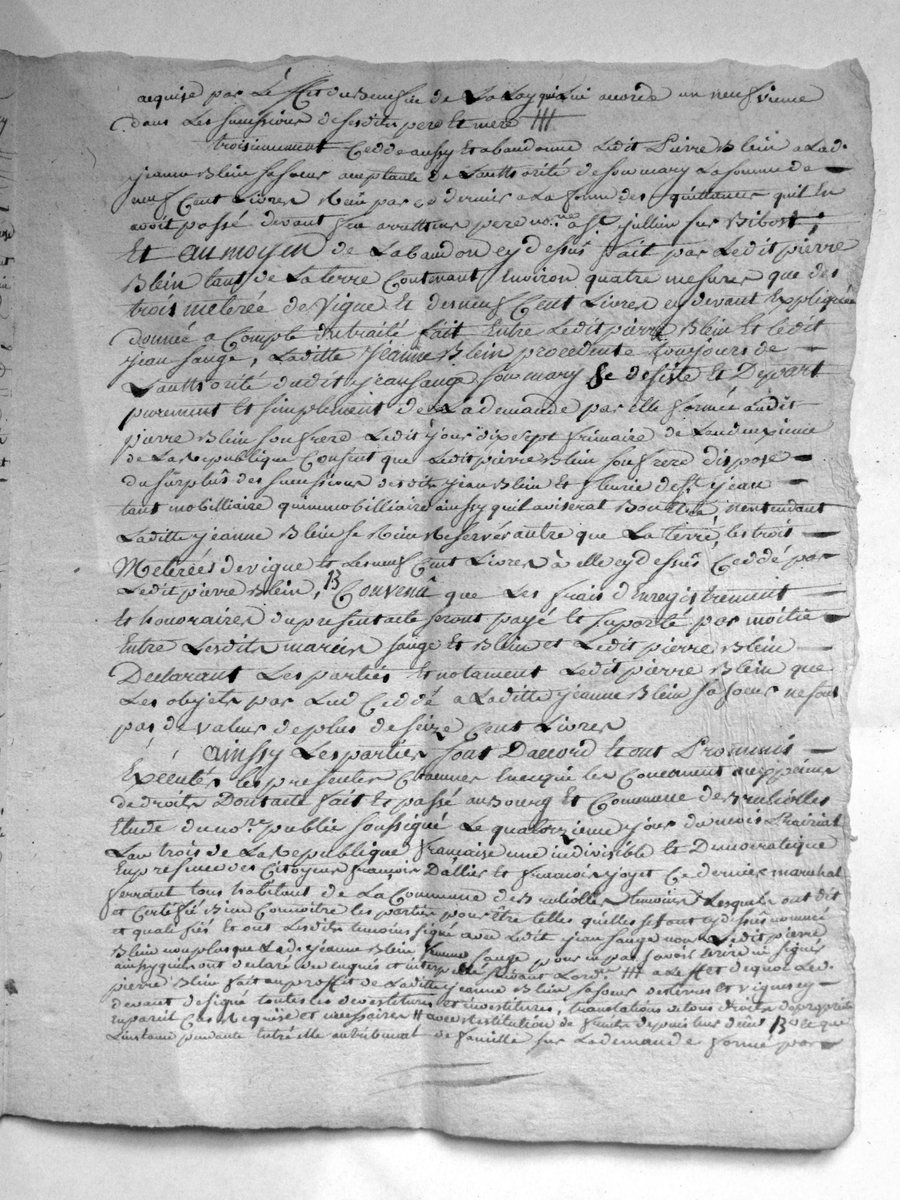 acquise par L'effet du Benefice de La Loy qui Lui accorde un neufvieme
dans Les successions de sesdits pere et mere ///
troisiemement Cedde aussy et abandonne Ledit Pierre Blein a Lad.
jeanne Blein sa soeur acceptante de L'authorité de son mary La somme de
neuf Cent Livres Reçu par ce dernier a La forme des quittances qu'il en
avoit passé devant feu arrettier pere no.re a St. jullien sur Bibost ;
Et au moyen de L'abandon cy dessus fait par Ledit pierre
Blein tant de La terre Contenant Environ quatre mesures que des
trois meterée de vigne Et des neuf Cent Livres cy devant Expliquée
donnée a Compte du traité fait Entre Ledit pierre Blein Et Ledit
jean sauge, Laditte jeanne Blein procedente toujours de
L'authorité dudit jean sauge son mary Se desiste Et Depart
purement Et simplement de La demande par elle formée audit
pierre Blein son frere Ledit jour dix sept frimaire de L'an deuxieme
de La Republique Consent que Ledit pierre Blein son frere dispose
du surplus des successions desdits jean Blein et fleurie de St. jean
tant mobilliaire qu'immobilliaire ainssy qu'il aviserat Bon être, n'entendant
Laditte jeanne Blein se Rien Reserver autre que La terre, les trois
Meterées de vigne et Les neuf Cent Livres à elle cy dessus Ceddé par
Ledit pierre Blein, B Convenû que Les fraix d'Enregistrement
et honoraires du present acte seront payé et suporté par moitie
Entre Lesdits mariés sauge Et Blein et Ledit pierre Blein
Declarant Les parties Et notament Ledit pierre Blein que
Les objets par Lui Ceddé a Laditte jeanne Blein sa soeur ne sont
pas de valeur de plus de seize Cent Livres
ainssy Les parties sont D'accord et ont Prommis
Exécuter les presentes Comme Les Concernent aux peines
de droits Dont acte fait Et passé au Bourg Et Commune de Brulliolles
Etude du no.re public soussigné Le quatorzieme jour du mois Prairial
L'an trois de La Republique francaise une indivisible et Democratique
En presence des Citoyens francois Dallier et francois joyet Ce dernier marechal
ferrant tous habitant de La Commune de Brulliolles temoins Lesquels ont dit
et Certifié Bien Connoitre les parties pour être telles quelles se sont cy dessus nommée
et qualifiés et ont Lesdits temoins signé avec Ledit jean sauge non Ledit pierre
Blein non plus que Lad. jeanne Blein femme sauge pour ne pas savoir Ecrire ni signer
ainssy quils ont déclaré de ce enquis et interpellé suivant L'ord.ce /// a L'effet de quoi Led.
pierre Blein fait au proffit de Laditte jeanne Blein sa soeur des terres et vignes cy
devant designé toutes les devestitures et investitures, translations et tous droits de proprieté
En pareil Cas Requise et necessaires // avec restitution de fruits depuis leur deces B et que
L'instance pendante entre elle au tribunal de famille sur La demande formé par